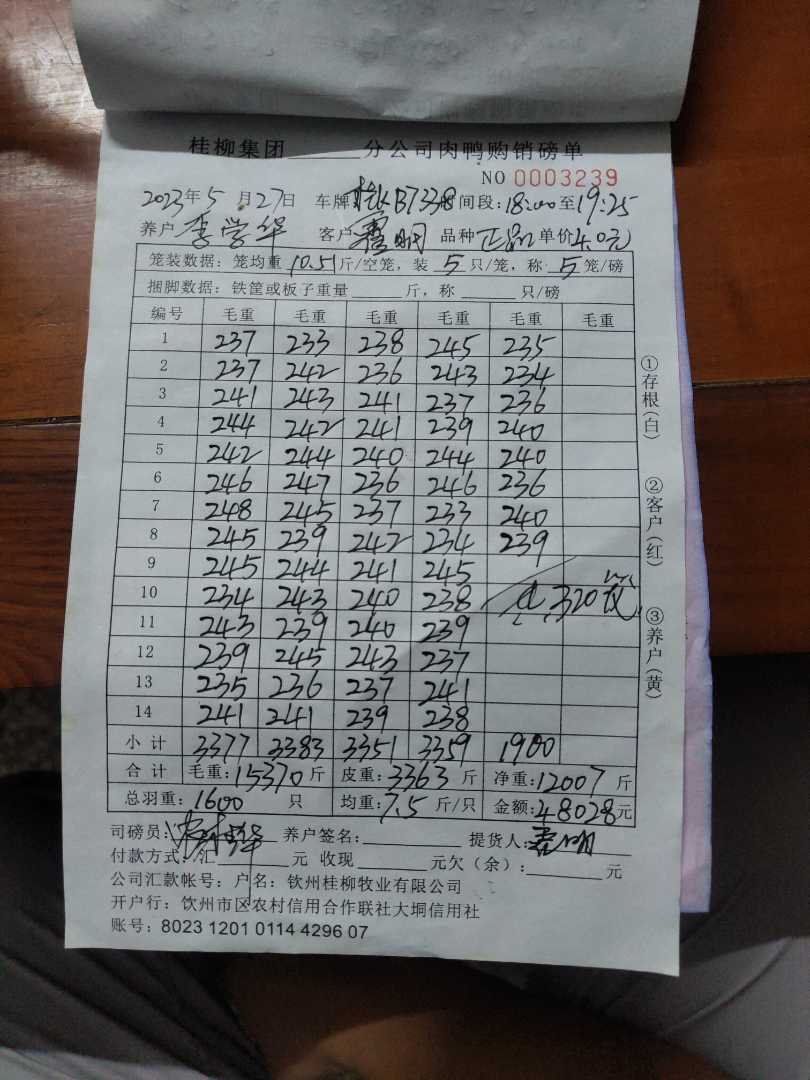 桂柳集团______分公司肉鸭购销磅单
NO 0003239
2023年5月27日 车牌 B7338 时间段:18:00至19:25
养户 李学华 客户 明 品种 正品 单价 4.0元
笼装数据: 笼均重 10.51 斤/空笼, 装 5 只/笼, 称 5 笼/磅
捆脚数据: 铁筐或板子重量______斤, 称______只/磅
编号 毛重 毛重 毛重 毛重 毛重 毛重
1 237 233 238 245 235
2 237 242 236 243 234
3 241 243 241 237 236
4 244 242 241 239 240
5 242 244 240 244 240
6 246 247 236 246 236
7 248 245 237 233 240
8 245 239 242 234 239
9 245 244 241 245
10 234 243 240 238 320
11 243 239 240 239
12 239 245 243 237
13 235 236 237 241
14 241 241 239 238
小计 3377 3383 3351 3359 1900
合计 毛重:15370斤 皮重:3363斤 净重:12007斤
总羽重:1600只 均重:7.5斤/只 金额:48028元
司磅员: 养户签名:______ 提货人: 明
付款方式: 汇______元 收现______元欠(余):______元
公司汇款帐号: 户名: 钦州桂柳牧业有限公司
开户行: 钦州市区农村信用合作联社大垌信用社
账号: 8023 1201 0114 4296 07
①存根(白)
②客户(红)
③养户(黄)